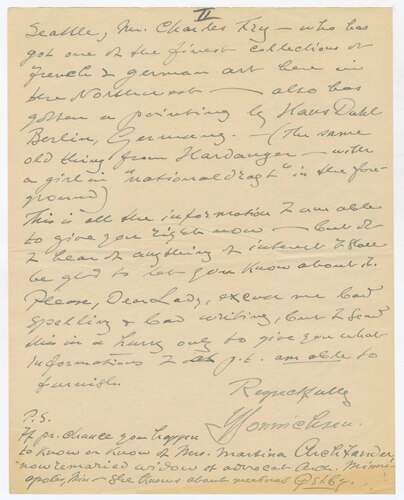 II
Seattle, Mr. Charles Fry – who has
got one of the finest collections of
french & german art here in
the Northwest – also has
gotten a painting by Hans Dahl
Berlin, Germany. – (The same
old thing from Hardanger – with
a girl in "national dragt" in the for-
ground)
This is all the information I am able
to give you right now – but if
I hear of anything of interest I shall
be glad to let you know about it.
Please, Dear Lady, excuse me bad
spelling & bad writing, but I send
this in a hurry only to give you what
informations I p.t. am able to
furnish.
Respectfully
P.S.
If pr. chance you happen
to know or know of Mrs. Martina
now remaried widow of advocat Minne-
apolis, Min – she knows about mentioned